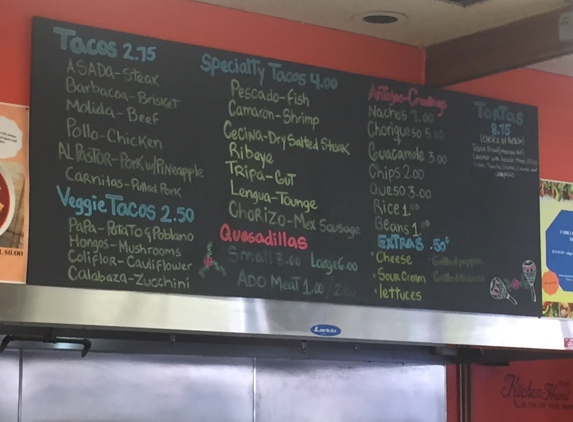 Tacos 2.75
ASADA-Steak
Barbacoa-Brisket
Molida-Beef
Pollo-Chicken
AL PASTOR-PORK w/Pineapple
Carnitas-Pulled Pork
Veggie Tacos 2.50
Papa-Potato & Poblano
Hongos-Mushrooms
Coliflor-Cauliflower
Calabaza-Zucchini
Specialty Tacos 4.00
Pescado-fish
Camaron-Shrimp
Cecina-Dry Salted Steak
Ribeye
Tripa-Gut
Lengua-Tounge
Chorizo-Mex Sausage
Quesadillas
Small 3.00 Large 6.00
ADD Meat 1.00/2.00
Antojos-Cravings
Nachos 7.00
Choriqueso 5.00
Guacamole 3.00
Chips 2.00
Queso 3.00
Rice 1.00
Beans 1.00
EXTRAS .50¢
•Cheese
•Sour Cream
•lettuces
•Grilled
•Grilled
Tortas
8.75
(choice of Meat)
Larkin
Kitchen
Heart